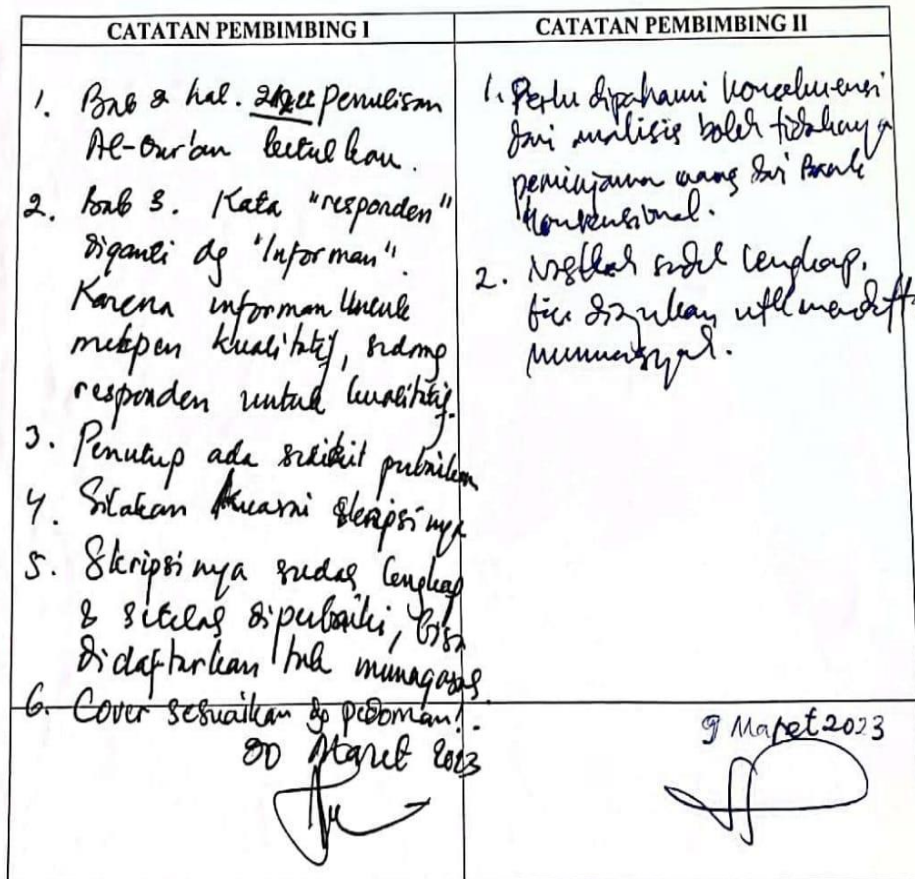 CATATAN PEMBIMBING I
1. Bab 2 hal. penulisan
Al-Qur'an betulkan.
2. Bab 3. Kata "responden"
diganti dg "Informan".
Karena informan untuk
metpen kualitatif, sedang
responden untuk kualitatif.
3. Penutup ada sedikit perbaikan
4. Silakan kuasai skripsinya
5. Skripsinya sudah lengkap
& setelah diperbaiki, bisa
didaftarkan tuk munaqasah.
6. Cover sesuaikan dg pedoman!
20 Maret 2023
CATATAN PEMBIMBING II
1. Perlu dipahami konsekuensi
dari analisis boleh tidaknya
peminjaman uang dari Bank
Konvensional.
2. Naskah sudah lengkap,
bisa diajukan utk mendaftar
munaqasyah.
9 Maret 2023